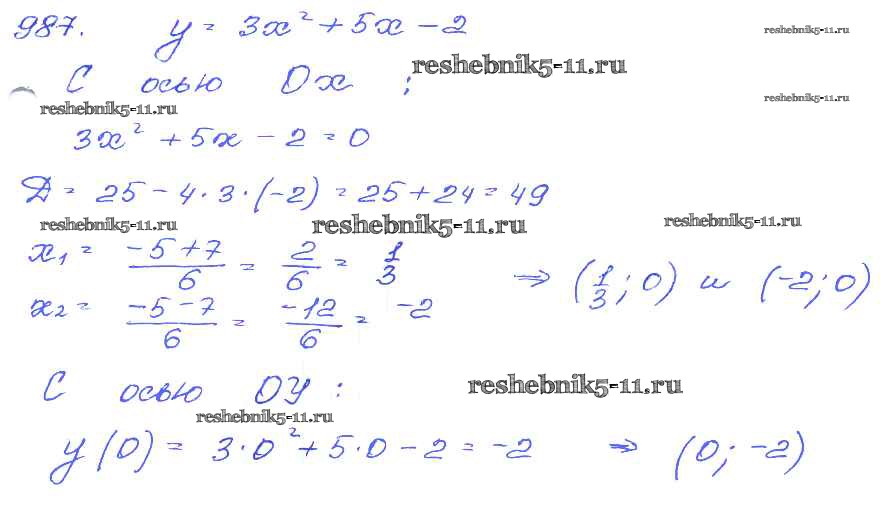 987. y = 3x² + 5x - 2
reshebnik5-11.ru
С осью Ox ; reshebnik5-11.ru
reshebnik5-11.ru reshebnik5-11.ru
3x² + 5x - 2 = 0
Д = 25 - 4·3·(-2) = 25 + 24 = 49
reshebnik5-11.ru reshebnik5-11.ru reshebnik5-11.ru
x₁ = (-5+7)/6 = 2/6 = 1/3 ⇒ (1/3; 0) и (-2; 0)
x₂ = (-5-7)/6 = -12/6 = -2
С осью OY : reshebnik5-11.ru
reshebnik5-11.ru
y(0) = 3·0² + 5·0 - 2 = -2 ⇒ (0; -2)